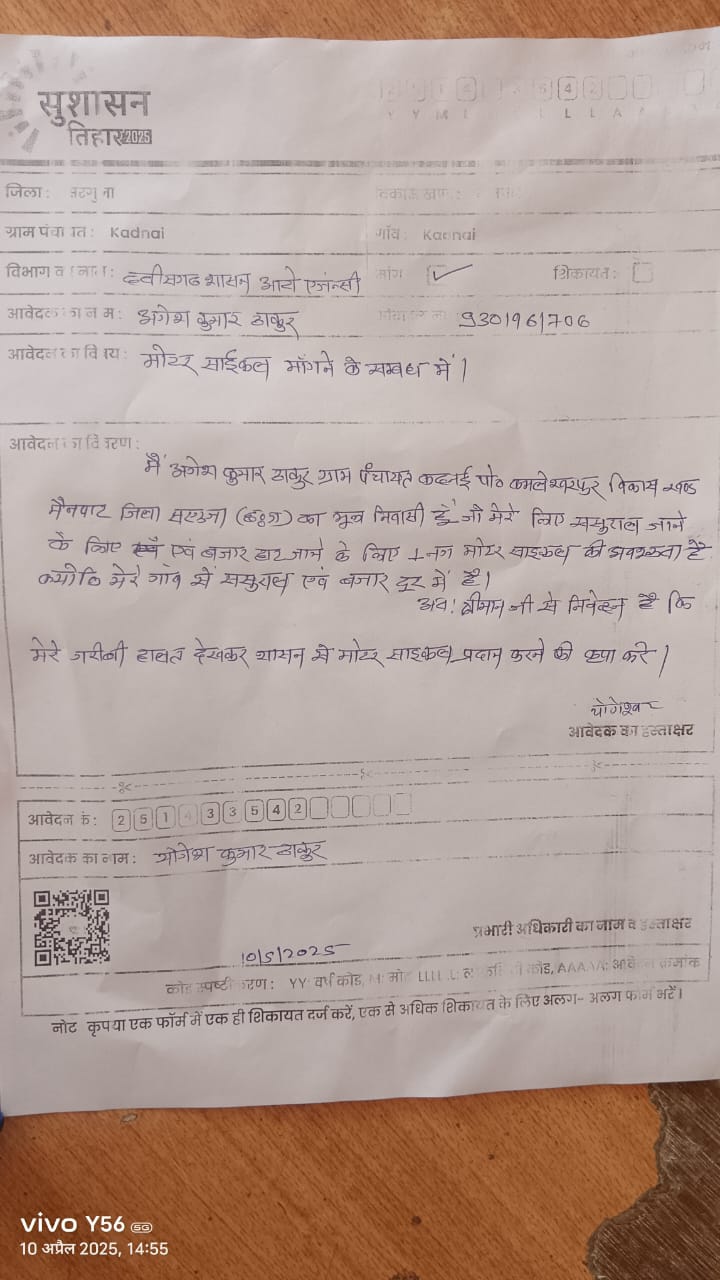 सुशासन
तिहार 2025
Y Y M L L L A
जिला:
ग्राम पंचायत: Kadnai गाँव: Kadnai
विभाग का नाम: छत्तीसगढ शासन आटो एजंन्सी मांग ✓ शिकायत:
आवेदक का नाम: अंगेश कुमार ठाकुर 9301961706
आवेदन का विषय: मोटर साईकल माँगने के सम्बध में।
आवेदन का विवरण:
मैं अंगेश कुमार ठाकुर ग्राम पंचायत कदनई पो० कमलेश्वरपुर विकास खण्ड
मैनपाट जिला सरगुजा (छ०ग) का मूल निवासी हूँ जो मेरे लिए ससुराल जाने
के लिए एवं बजार हाट जाने के लिए 1 नग मोटर साइकल की अवश्यक्ता है
क्योकि मेरे गांव से ससुराल एवं बजार दूर में है।
अतः श्रीमान जी से निवेदन है कि
मेरे गरीबी हालत देखकर शासन से मोटर साइकल प्रदान करने की कृपा करे।
योगेश्वर
आवेदक का हस्ताक्षर
आवेदन क्रं: 2 5 1 4 3 3 5 4 2
आवेदक का नाम: योगेश कुमार ठाकुर
प्रभारी अधिकारी का नाम व हस्ताक्षर
10/5/2025
कोड स्पष्टीकरण: YY: वर्ष कोड, कोड, AAAAA: आवेदन क्रमांक
नोट कृपया एक फॉर्म में एक ही शिकायत दर्ज करें, एक से अधिक शिकायत के लिए अलग- अलग फॉर्म भरें।
vivo Y56 5G
10 अप्रैल 2025, 14:55